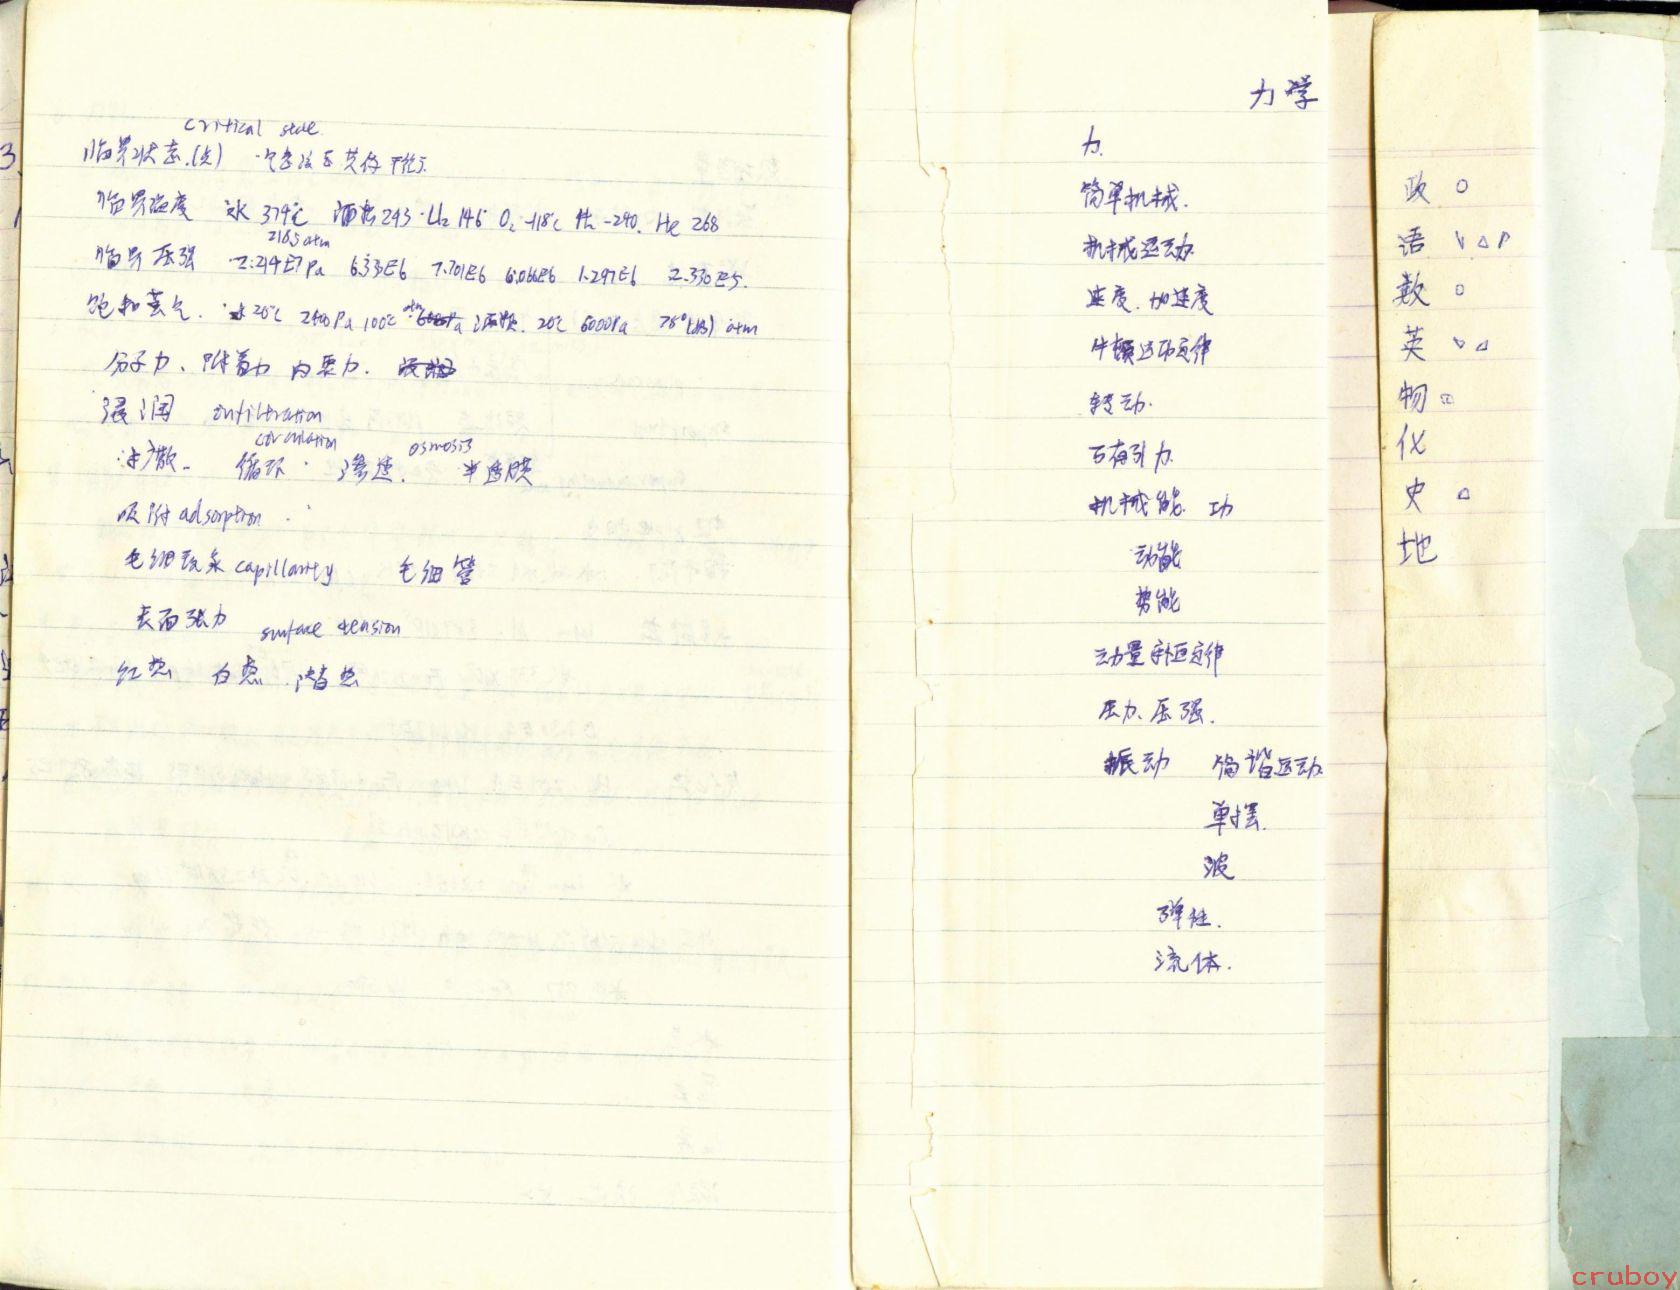 critical state
临界状态.(点) 气态液态共存平衡.
临界温度 水 374℃ 酒精243 Cl₂ 146 O₂ -118℃ H₂ -240. He 268
218.5 atm
临界压强 2.214E7Pa 6.33E6 7.701E6 6.066E6 1.297E6 2.330E5.
饱和蒸气. 水20℃ 2400Pa 100℃ atm 酒精. 20℃ 6000Pa 78°(沸) atm
分子力、附着力 内聚力.
浸润 infiltration
circulation osmosis
扩散. 循环 渗透. 半透膜
吸附 adsorption
毛细现象 capillarity 毛细管
表面张力 surface tension
红热 白热 潜热
力学
力.
简单机械.
机械运动.
速度.加速度
牛顿运动定律
转动.
万有引力
机械能. 功
动能
势能
动量守恒定律
压力、压强.
振动 简谐运动
单摆.
波
弹性.
流体.
政 ○
语 ∨ △ P
数 ○
英 ∨ △
物 □
化
史 △
地
cruboy